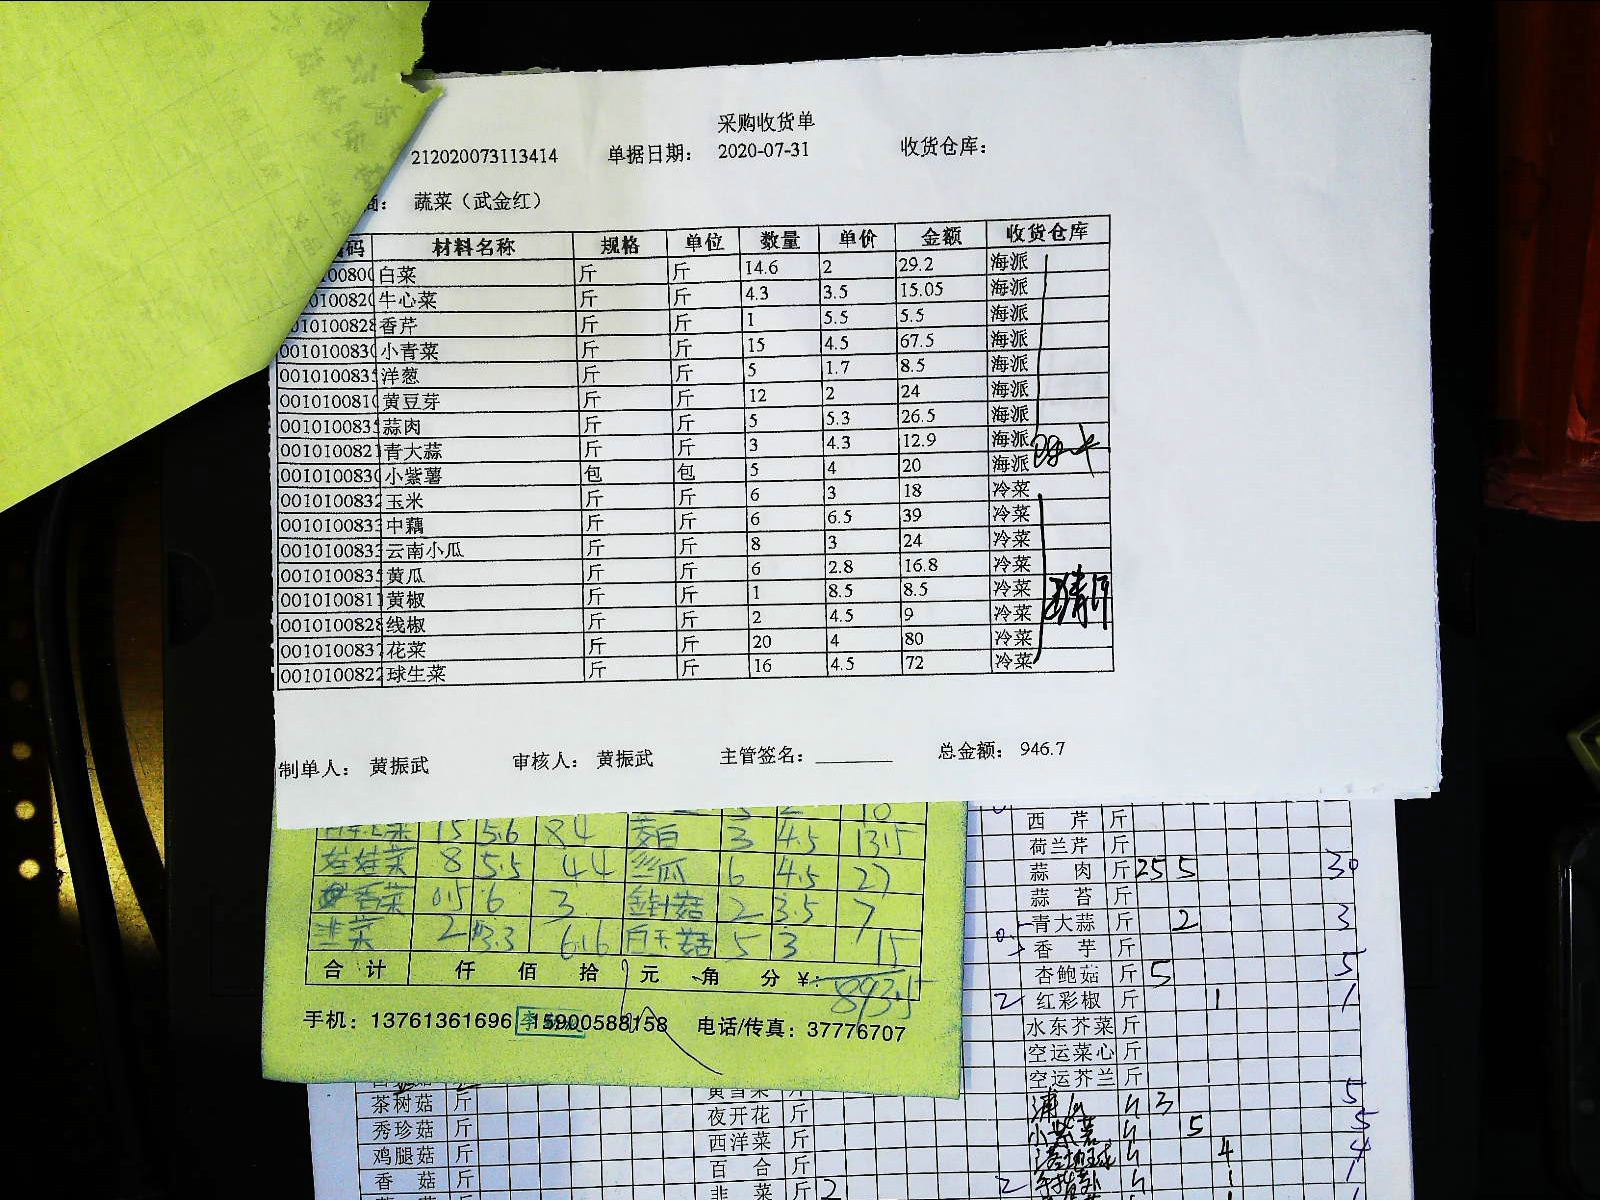 采购收货单
212020073113414 单据日期： 2020-07-31 收货仓库：
蔬菜（武金红）
码 材料名称 规格 单位 数量 单价 金额 收货仓库
白菜 斤 斤 14.6 2 29.2 海派
牛心菜 斤 斤 4.3 3.5 15.05 海派
香芹 斤 斤 1 5.5 5.5 海派
小青菜 斤 斤 15 4.5 67.5 海派
洋葱 斤 斤 5 1.7 8.5 海派
黄豆芽 斤 斤 12 2 24 海派
蒜肉 斤 斤 5 5.3 26.5 海派
青大蒜 斤 斤 3 4.3 12.9 海派
小紫薯 包 包 5 4 20 海派
玉米 斤 斤 6 3 18 冷菜
中藕 斤 斤 6 6.5 39 冷菜
云南小瓜 斤 斤 8 3 24 冷菜
黄瓜 斤 斤 6 2.8 16.8 冷菜
黄椒 斤 斤 1 8.5 8.5 冷菜
线椒 斤 斤 2 4.5 9 冷菜
花菜 斤 斤 20 4 80 冷菜
球生菜 斤 斤 16 4.5 72 冷菜
制单人： 黄振武 审核人： 黄振武 主管签名： 总金额： 946.7
15 5.6 84 茭白 3 4.5 13.5
娃娃菜 8 5.5 44 丝瓜 6 4.5 27
香菜 0.5 6 3 金针菇 2 3.5 7
韭菜 2 3.3 6.6 白玉菇 5 3 15
合 计 仟 佰 拾 元 角 分 ¥: 893.5
手机：13761361696 15900588158 电话/传真：37776707
西 芹 斤
荷兰芹 斤
蒜 肉 斤 25 5 30
蒜 苔 斤
青大蒜 斤 2 3
香 芋 斤
杏鲍菇 斤 5 5
2 红彩椒 斤 1 1
水东芥菜 斤
空运菜心 斤
空运芥兰 斤
茶树菇 斤 夜开花 斤
秀珍菇 斤 西洋菜 斤
鸡腿菇 斤 百 合 斤
香 菇 斤 韭 菜 斤 2